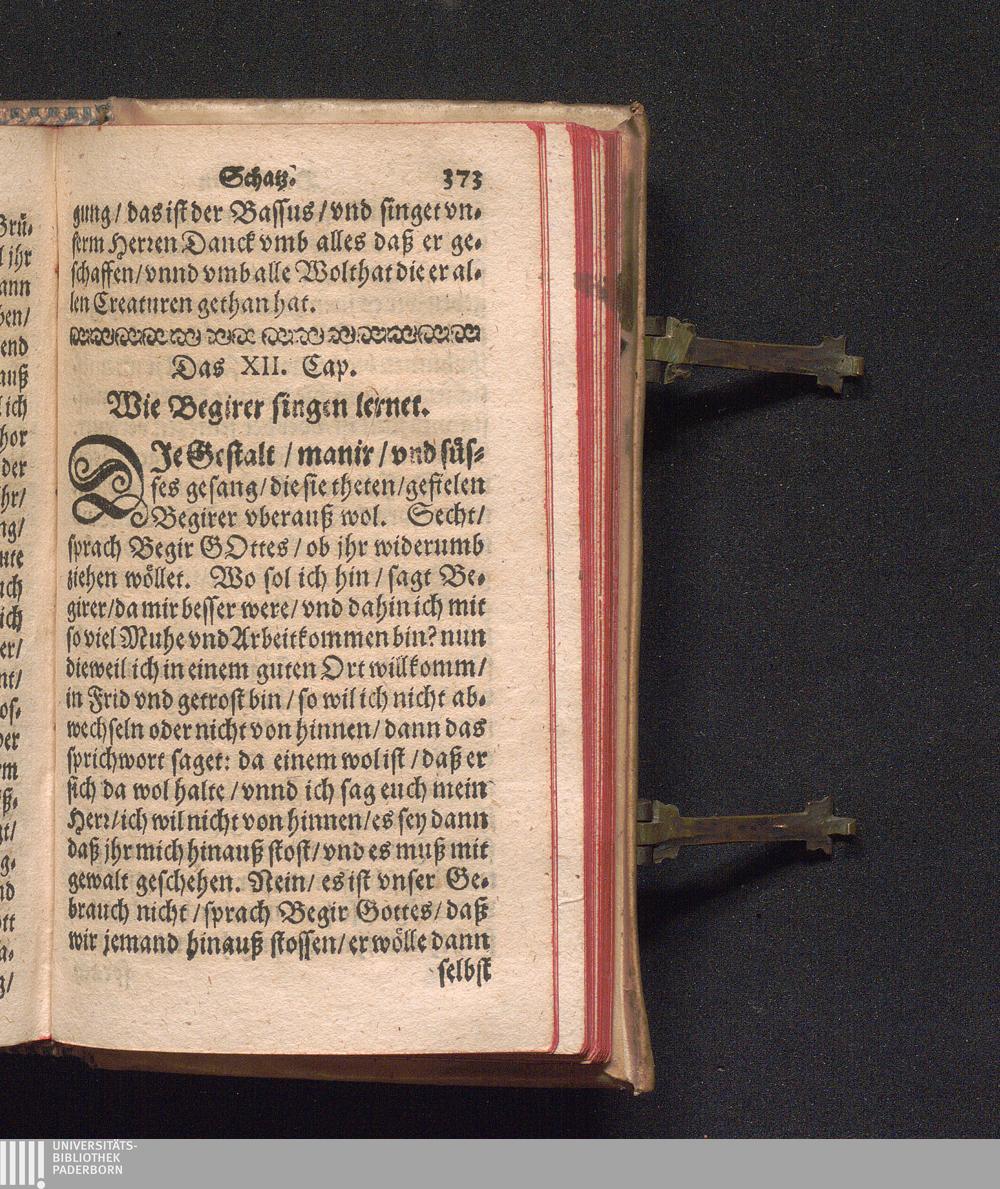 Schatz. 373
gung / das ist der Bassus / vnd singet vn-
serm Herren Danck vmb alles daß er ge-
schaffen / vnnd vmb alle Wolthat die er al-
len Creaturen gethan hat.
Das XII. Cap.
Wie Begirer singen lernet.
DIe Gestalt / manir / vnd süs-
ses gesang / die sie theten / gefielen
Begirer vberauß wol. Secht /
sprach Begir GOttes / ob jhr widerumb
ziehen wöllet. Wo sol ich hin / sagt Be-
girer / da mir besser were / vnd dahin ich mit
so viel Muhe vnd Arbeit kommen bin? nun
dieweil ich in einem guten Ort willkomm /
in Frid vnd getrost bin / so wil ich nicht ab-
wechseln oder nicht von hinnen / dann das
sprichwort saget: da einem wol ist / daß er
sich da wol halte / vnnd ich sag euch mein
Herr / ich wil nicht von hinnen / es sey dann
daß jhr mich hinauß stost / vnd es muß mit
gewalt geschehen. Nein / es ist vnser Ge-
brauch nicht / sprach Begir Gottes / daß
wir jemand hinauß stossen / er wölle dann
selbst
Brü-
l jhr
ann
ben /
end
auß
lich
hor
der
hr /
ng /
ute
uch
ich
er /
nt /
os-
der
em
iß-
gt /
g-
nd
ott
a-
g /
UNIVERSITÄTS-
BIBLIOTHEK
PADERBORN